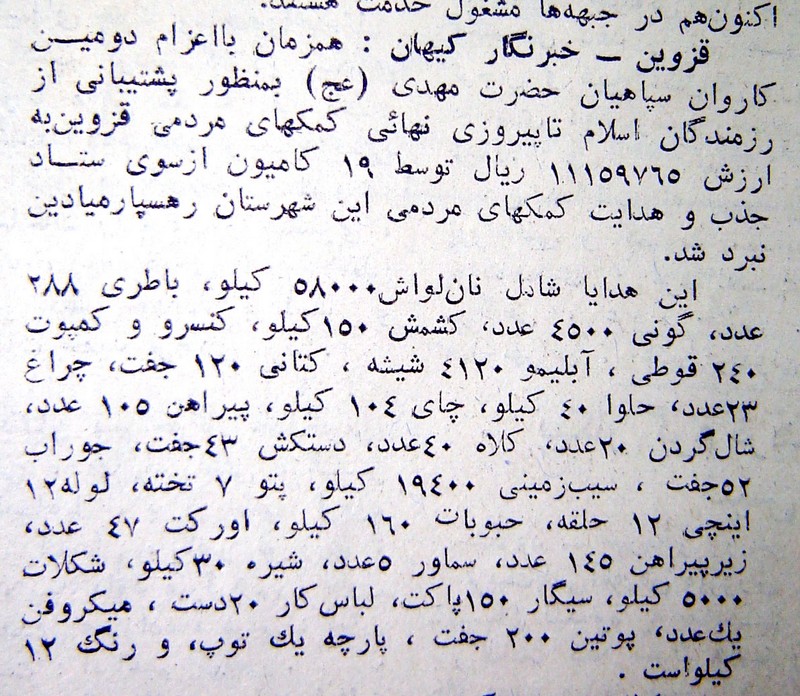 اکنون‌هم در جبهه‌ها مشغول خدمت هستند.
قزوین ــ خبرنگار کیهان : همزمان بااعزام دومیــن
کاروان سپاهیان حضرت مهدی (عج) بمنظور پشتیبانی از
رزمندگان اسلام تاپیروزی نهائی کمکهای مردمی قزوین‌به
ارزش ۱۱۱۵۹۷٦۵ ریال توسط ۱۹ کامیون ازسوی ستــاد
جذب و هدایت کمکهای مردمی این شهرستان رهسپارمیادین
نبرد شد.
این هدایا شامل نان‌لواش۵۸۰۰۰ کیلو، باطری ۲۸۸
عدد، گونی ٤۵۰۰ عدد، کشمش ۱۵۰کیلو، کنسرو و کمپوت
۲٤۰ قوطی ، آبلیمو ٤۱۲۰ شیشه ، کتانی ۱۲۰ جفت، چراغ
۲۳عدد، حلوا ٤۰ کیلو، چای ۱۰٤ کیلو، پیراهن ۱۰۵ عدد،
شال‌گردن ۲۰عدد، کلاه ٤۰عدد، دستکش ٤۳جفت، جوراب
۵۲جفت ، سیب‌زمینی ۱۹٤۰۰ کیلو، پتو ۷ تخته، لوله۱۲
اینچی ۱۲ حلقه، حبوبات ۱٦۰ کیلو، اورکت ٤۷ عدد،
زیرپیراهن ۱٤۵ عدد، سماور ۵عدد، شیره ۳۰کیلو، شکلات
۵۰۰۰ کیلو، سیگار ۱۵۰پاکت، لباس‌کار ۲۰دست ، میکروفن
یك‌عدد، پوتین ۲۰۰ جفت ، پارچه یك توپ، و رنگ ۱۲
کیلواست .